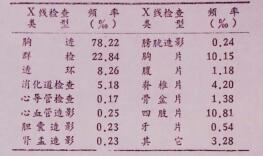 X线检查类型 频率(‰) X线检查类型 频率(‰)
胸透 78.22 膀胱造影 0.24
群检 22.84 胸片 10.15
透环 8.26 腹片 1.18
消化道检查 5.18 脊椎片 4.20
心导管检查 0.17 骨盆片 1.38
心血管造影 0.25 四肢片 10.81
胆囊造影 0.23 牙片 0.54
肾盂造影 0.23 其它 3.28